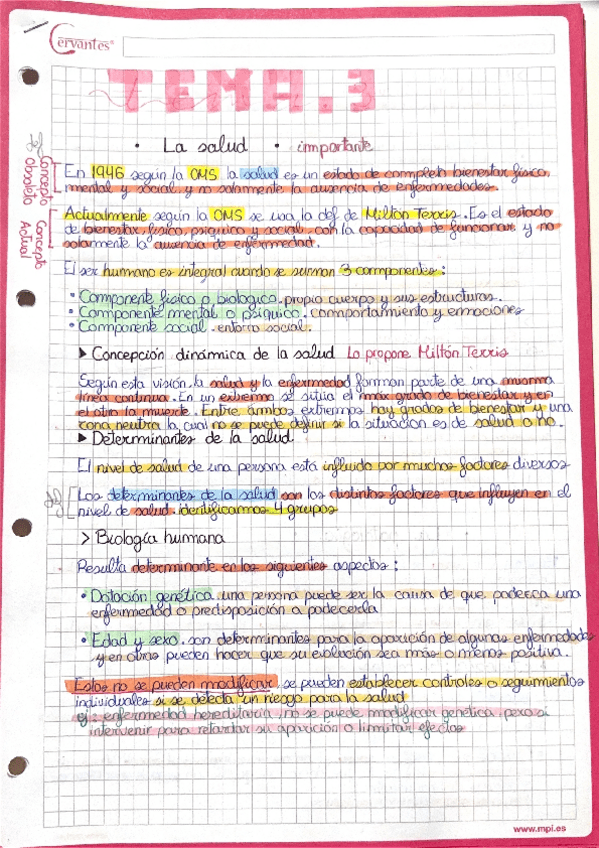 Cervantes
TEMA.3
• La salud • importante
Concepto Obsoleto
En 1946 según la OMS la salud es un estado de completo bienestar físico,
mental y social, y no solamente la ausencia de enfermedades.
Concepto Actual
Actualmente según la OMS se usa la def de Milton Terris. Es el estado
de bienestar físico, psíquico y social, con la capacidad de funcionar y no
solamente la ausencia de enfermedad.
El ser humano es integral cuando se suman 3 componentes:
• Componente físico o biologico. propio cuerpo y sus estructuras.
• Componente mental o psíquico. comportamiento y emociones
• Componente social. entorno social.
➤ Concepción dinámica de la salud Lo propone Miltón Terris
Según esta visión, la salud y la enfermedad forman parte de una misma
línea continua. En un extremo se situa el max grado de bienestar y en
el otro la muerte. Entre ambos extremos hay grados de bienestar y una
zona neutra la cual no se puede definir si la situación es de salud o no.
➤ Determinantes de la salud
El nivel de salud de una persona está influido por muchos factores diversos
def
Los determinantes de la salud son los distintos factores que influyen en el
nivel de salud. identificamos 4 grupos
> Biología humana
Resulta determinante en los siguientes aspectos:
• Dotación genética. una persona puede ser la causa de que padezca una
enfermedad o predisposición a padecerla
• Edad y sexo. son determinantes para la aparición de algunas enfermedades
y en otras pueden hacer que su evolución sea más o menos positiva.
Estos no se pueden modificar, se pueden establecer controles o seguimientos
individuales si se detecta un riesgo para la salud
ej: enfermedad hereditaria, no se puede modificar genética, pero si
intervenir para retardar su aparición o limitar efectos
www.mpi.es